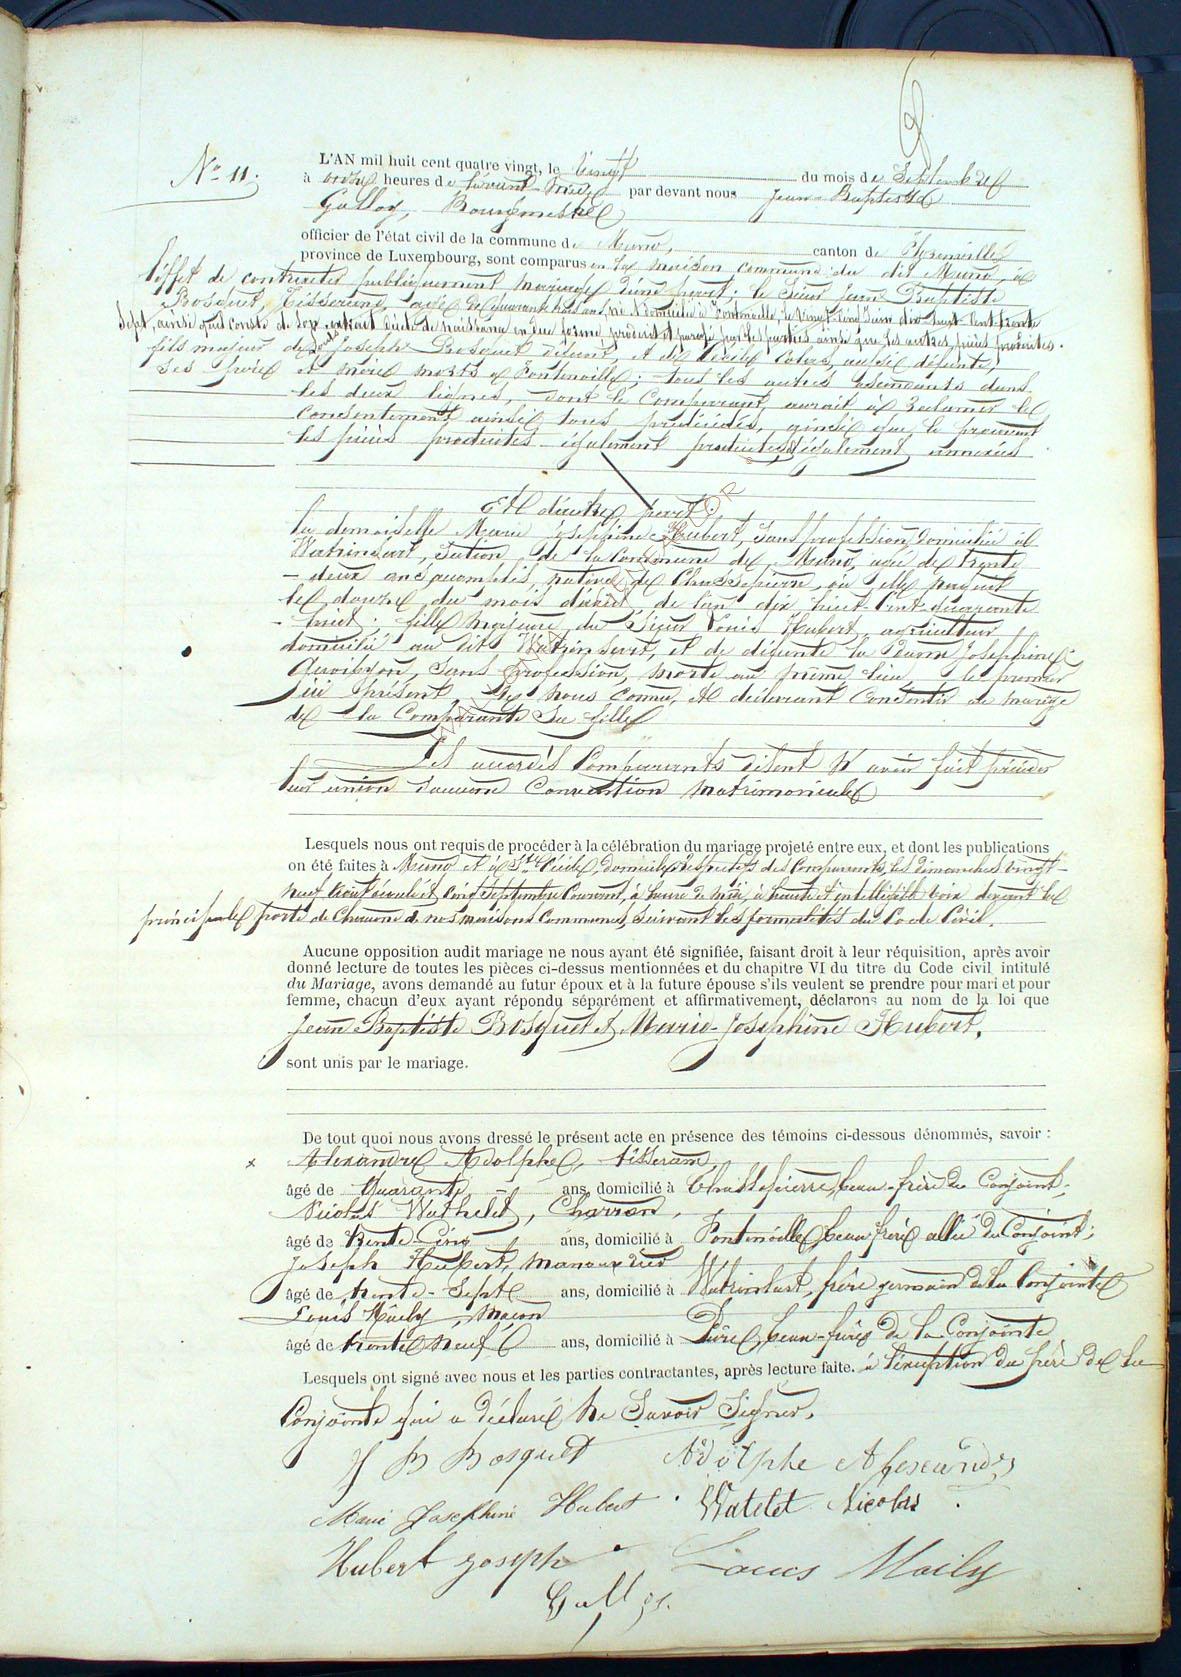 N° 11.
L'AN mil huit cent quatre vingt, le vingt du mois de Septembre
à onze heures de avant-midi par devant nous Jean-Baptiste
Galloy, Bourgmestre
officier de l'état civil de la commune de Muno, canton de Florenville
province de Luxembourg, sont comparus en la maison commune du dit Muno, à
l'effet de contracter publiquement mariage d'une part: le Sieur Jean Baptiste
Bosquet, Tisserand, agé de quarante trois ans, né & domicilié à Fontenoille, le vingt dix huit-cent-trente
Sept, ainsi qu'il conste de son extrait d'acte de naissance en due forme, produit et paraphé par les parties ainsi que les autres pièces produites.
fils majeur de Joseph Bosquet défunt, et de Cécile aussi défunte,
ses père et mère morts à Fontenoille; tous les autres ascendants dans
les deux lignes, dont le Comparant aurait à réclamer le
consentement, ainsi tous prédécédés, ainsi que le prouvent
les pièces produites également produites également annexées
Et d'autre part:
la demoiselle Marie Joséphine Hubert, sans profession, domiciliée à
Watrinsart, section de la Commune de Muno, agée de trente
-deux ans accomplis, native de Chassepierre, où elle naquit
le douze du mois d'avril de l'an dix huit-Cent-quarante
-huit; fille majeure du Sieur Louis Hubert, agriculteur
domicilié au dit Watrinsart, et de défunte la Dame Joséphine
sans profession, morte au même lieu, le premier
ici présent de nous connu, et déclarant consentir au mariage
de la Comparante sa fille
Les accordés Comparants disent N'avoir fait précéder
leur union d'aucune Convention matrimoniale
Lesquels nous ont requis de procéder à la célébration du mariage projeté entre eux, et dont les publications
on été faites à Muno et à Ste Cécile, domiciles respectifs des Comparants, les dimanches vingt-
neuf août écoulé et cinq Septembre Courant, à heure de Midi, à haute et intelligible voix devant la
principale porte de Chacune de nos maisons Communes, suivant les formalités du Code Civil.
Aucune opposition audit mariage ne nous ayant été signifiée, faisant droit à leur réquisition, après avoir
donné lecture de toutes les pièces ci-dessus mentionnées et du chapitre VI du titre du Code civil intitulé
du Mariage, avons demandé au futur époux et à la future épouse s'ils veulent se prendre pour mari et pour
femme, chacun d'eux ayant répondu séparément et affirmativement, déclarons au nom de la loi que
Jean Baptiste Bosquet & Marie-Joséphine Hubert,
sont unis par le mariage.
De tout quoi nous avons dressé le présent acte en présence des témoins ci-dessous dénommés, savoir :
x Alexandre Adolphe, tisserand,
âgé de Quarante ans, domicilié à Chassepierre, beau-frère du Conjoint;
Nicolas Wathelet, Charron,
âgé de trente-Cinq ans, domicilié à Fontenoille, beau frère allié du Conjoint;
Joseph Hubert, manouvrier
âgé de trente-Sept ans, domicilié à Watrinsart, frère germain de la Conjointe
Louis Maily, Maçon
âgé de trente neuf ans, domicilié à beau-frère de la Conjointe
Lesquels ont signé avec nous et les parties contractantes, après lecture faite. à l'éxception du père de la
Conjointe qui a déclaré Ne Savoir Signer.
J B Bosquet Adolphe Alexandre
Marie Josephine Hubert Watelet Nicolas
Hubert Joseph Louis Maily
Galloy.